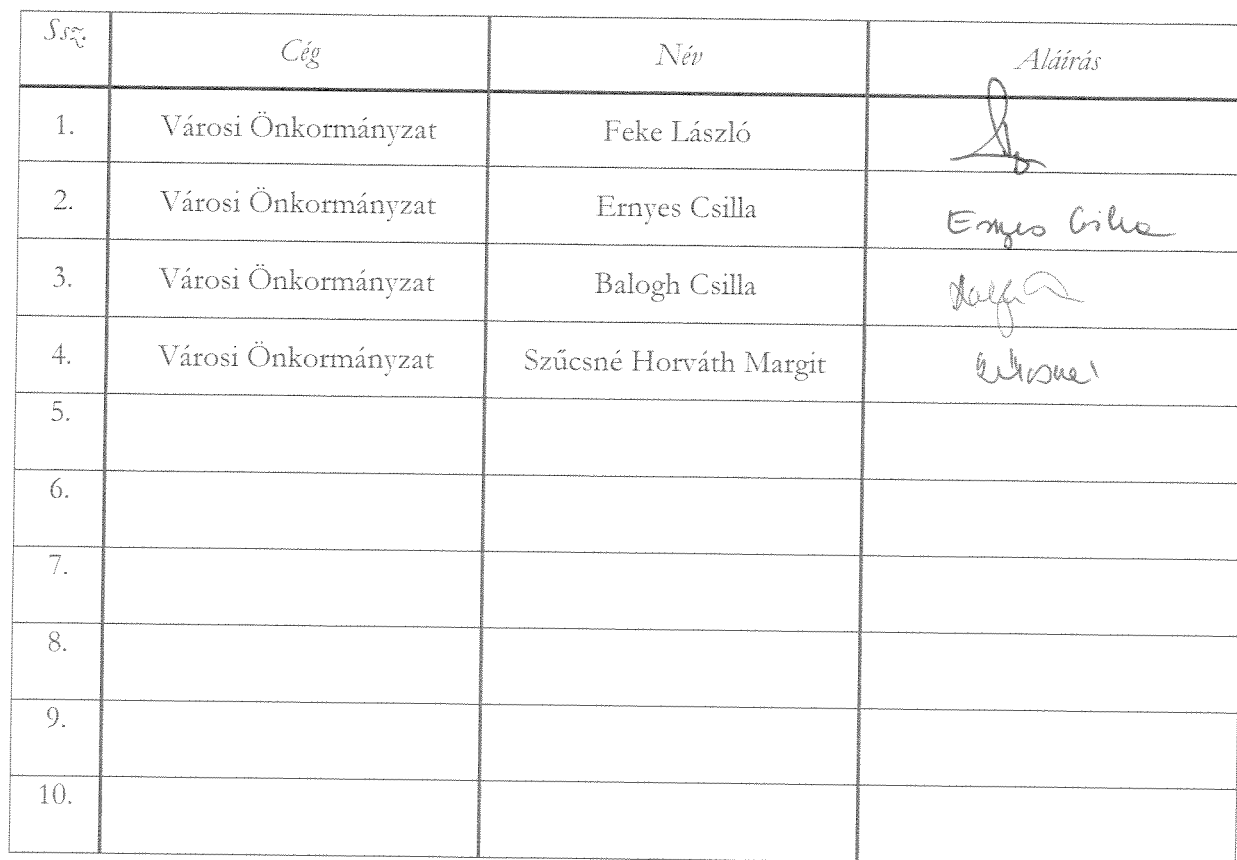 Ssz. Cég Név Aláírás
1. Városi Önkormányzat Feke László
2. Városi Önkormányzat Ernyes Csilla Ernyes Csilla
3. Városi Önkormányzat Balogh Csilla
4. Városi Önkormányzat Szűcsné Horváth Margit Szűcsné
5.
6.
7.
8.
9.
10.